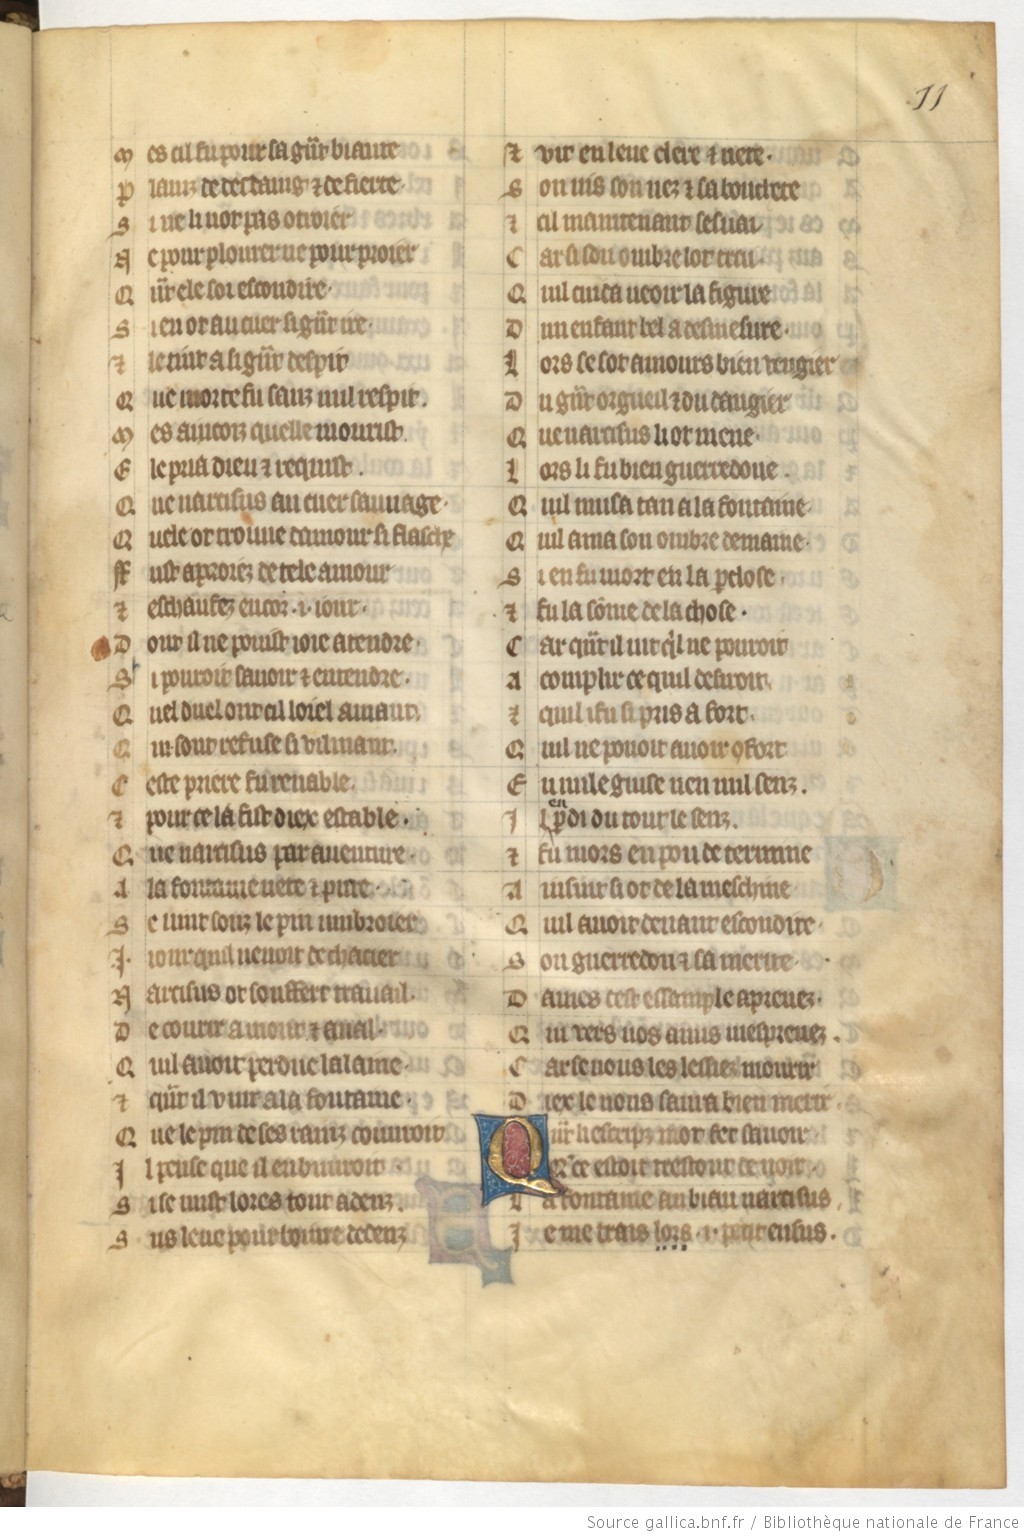 11
Mes cil fu pour sa gñr biaute
Plainz de desdaing ⁊ de fierte
Si ne li vot pas otroier
Ne pour plourer ne pour proier
Qñr ele soi escondire
Si en ot au cuer si gñt ire
⁊ le tint a si gñt despit
Que morte fu sanz nul respit.
Mes aincoiz quelle mourist
Ele pria dieu ⁊ requist.
Que narcisus au cuer sauvage
Quele ot trouve damour si flasche
ffust aproiez de tele amour
⁊ eschaufez encor .i. iour.
Dont il ne pouist ioie atendre
Si pouroit savoir ⁊ entendre.
Quel duel ont cil loiel amant.
Qui sont refuse si vilmant.
Ceste priere fu renable.
⁊ pour ce la fist diex estable.
Que narcisus par aventure.
A la fontaine nete ⁊ pure.
Se vint souz le pin umbroier
I. iour quil venoit de chacier
Narcisus ot souffert travail.
De courir amont ⁊ aval.
Quil avoit perdue lalaine.
⁊ qñt il vint a la fontaine.
Que le pin de ses rainz couvroit
Il pense que il en buvroit
Si se mist lores tout adenz.
Sus leue pour boivre dedenz
⁊ vit en leue clere ⁊ nete.
Son vis son nez ⁊ sa bouchete
⁊ cil maintenant sesbai
Car si son ombre lot trai.
Quil cuida veoir la figure
Dun enfant bel a desmesure.
Lors se sot amours bien vengier
Du gñt orgueil ⁊ du dangier
Que narcisus li ot mene.
Lors li fu bien guerredone.
Quil musa tan a la fontaine
Quil ama son ombre demaine.
Si en fu mort en la pclose.
⁊ fu la sõme de la chose.
Car qñt il vit ql ne pouroit
Acomplir ce quil desiroit.
⁊ quil i fu si pris a fort.
Quil ne povoit avoir 9fort
En nule guise nen nul senz.
Il en pdi du tout le senz.
⁊ fu mors en pou de termine
Ainsint si ot de la meschine
Quil avoit devant escondite.
Son guerredon ⁊ sa merite.
Dames cest essample aprenez.
Qui vers vos amis mesprenez.
Car se vous les lessiez mourir
Diex le vous saura bien merir.
Qñt li escripz mot fet savoir
Que ce estoit trestout de voir.
La fontaine au biau narcisus.
Je me trais lors .i. petit ensus.